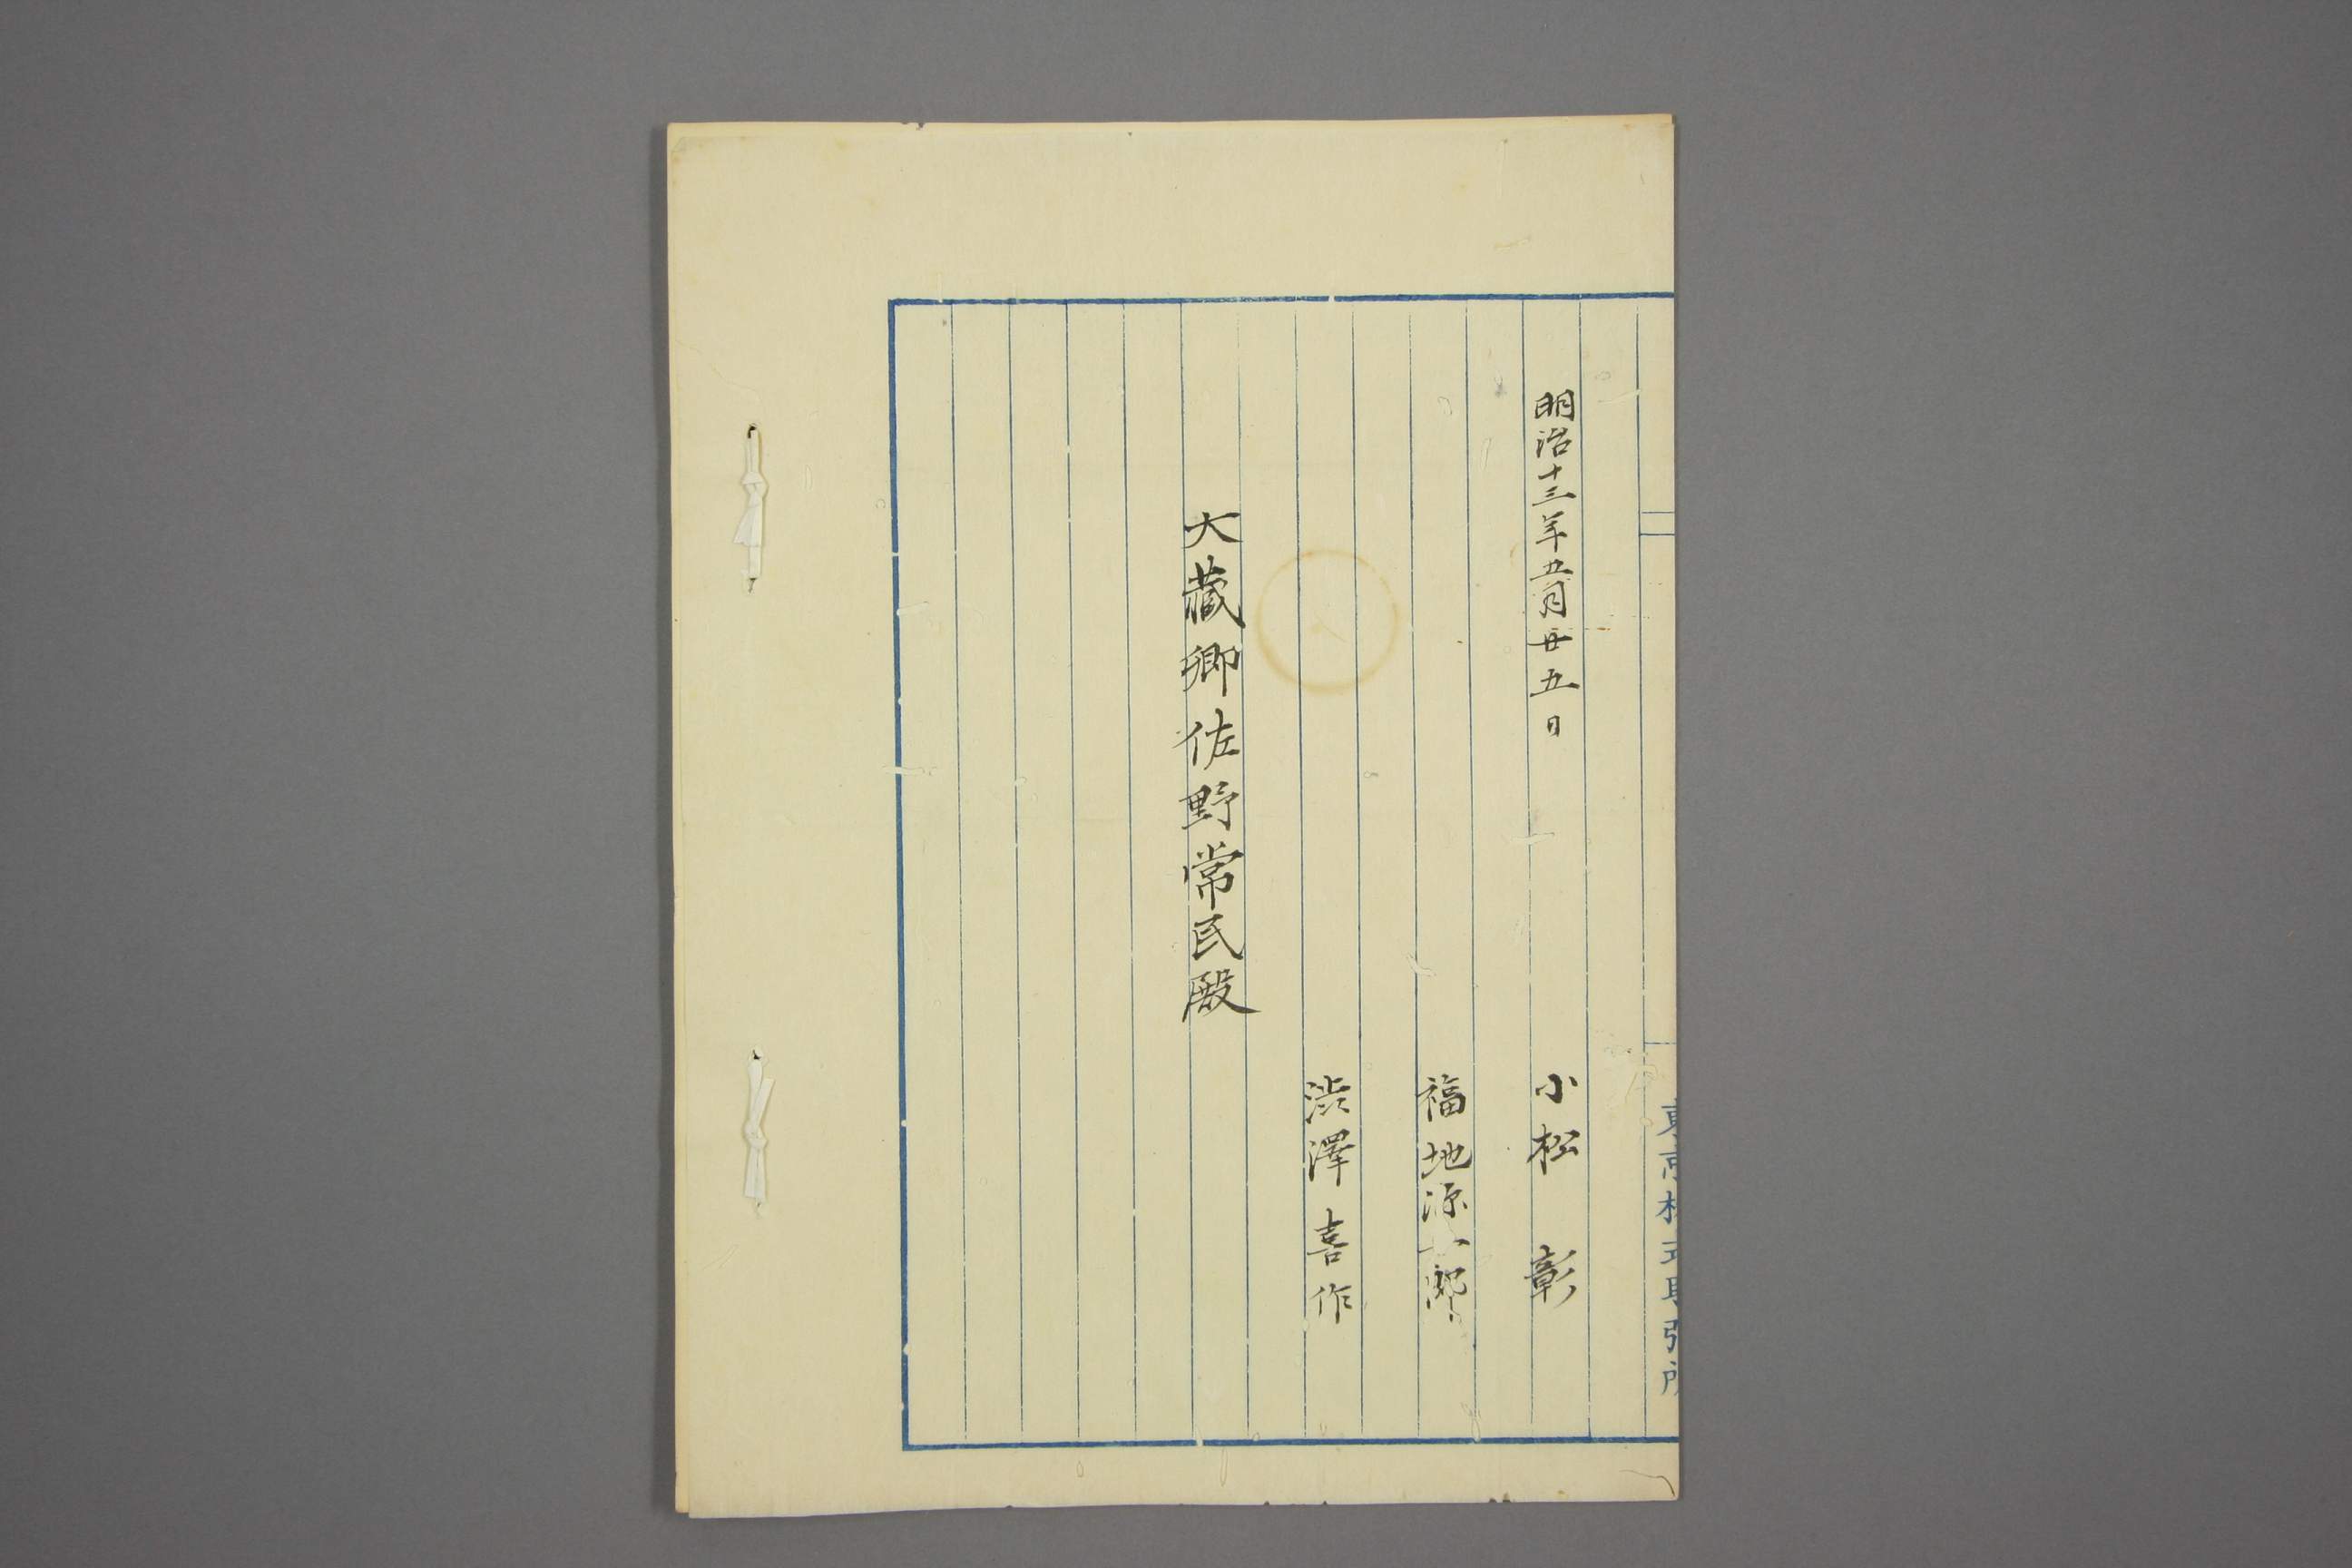 東京株式取引所
明治十三年五月廿五日
小松彰
福地源一郎
渋澤喜作
大藏卿佐野常民殿